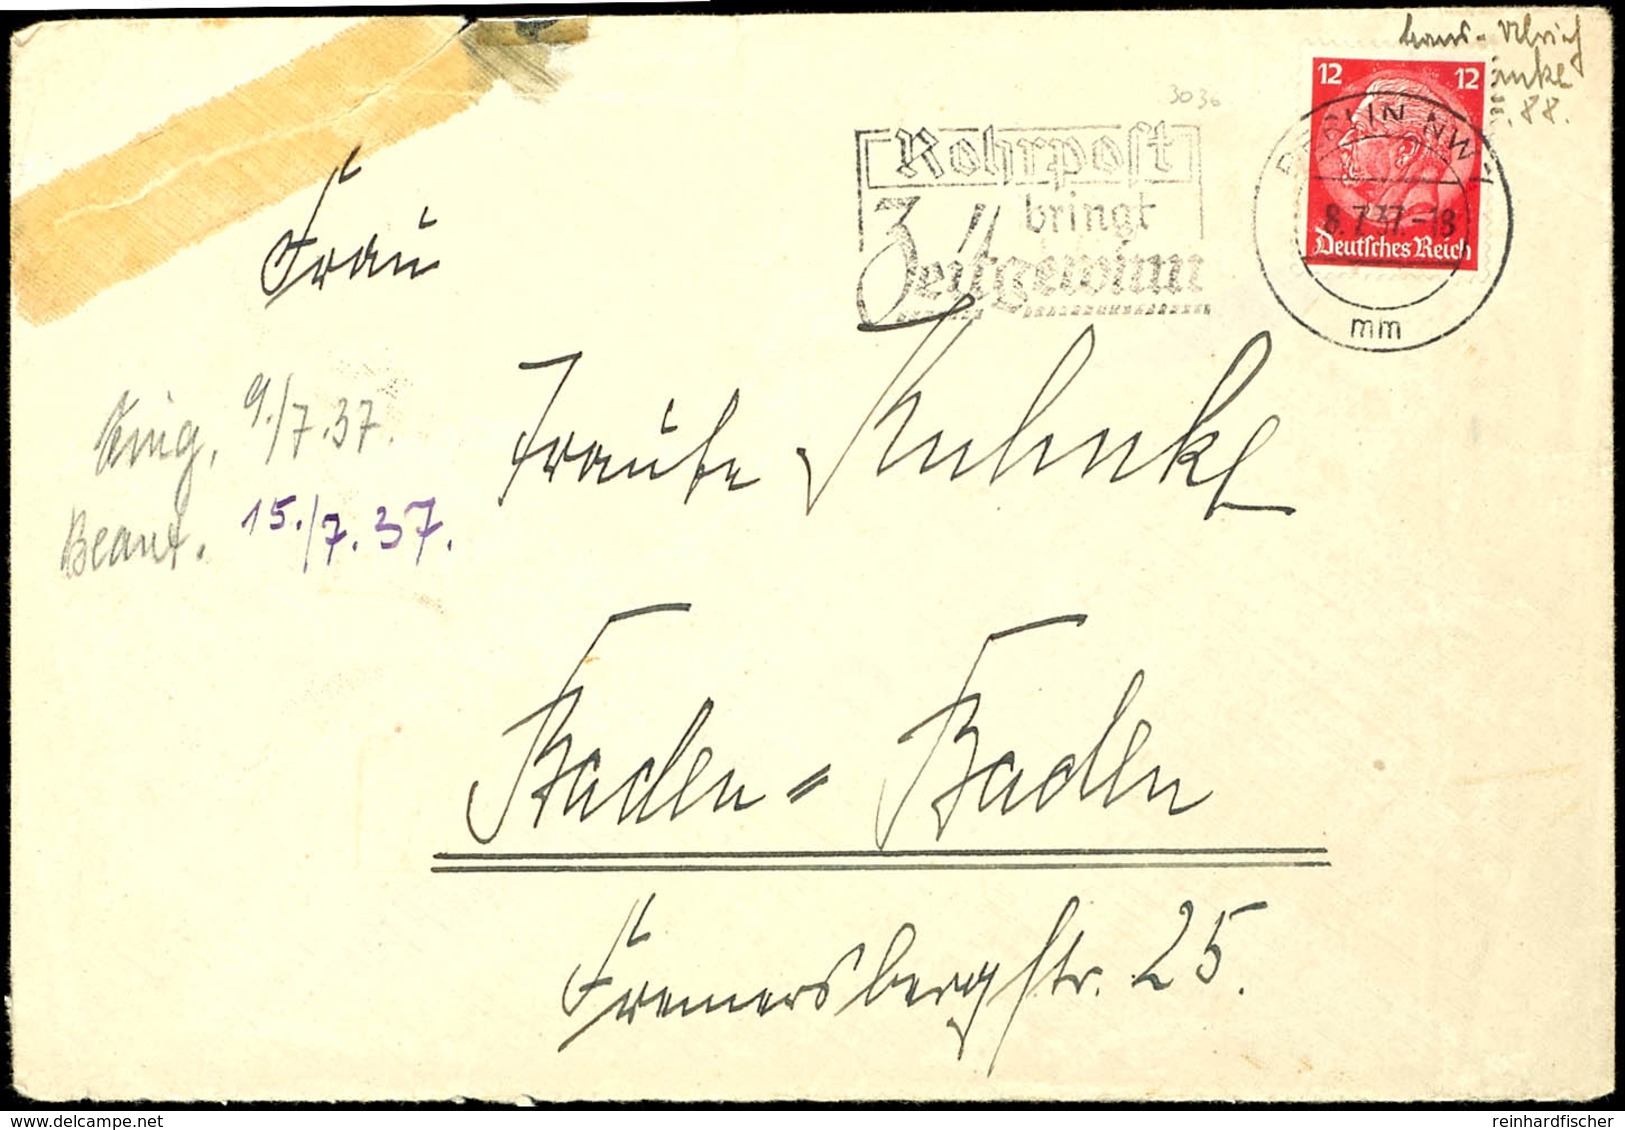 Hans-Ulrich
.88.
3036
12 12
Deutsches Reich
BERLIN NW 7
8.7.37.-18
mm
Rohrpost
bringt
Zeitgewinn
Frau
Eing. 9./7.37.
Beant. 15./7.37.
Traute Kuhnke
Baden-Baden
Fremersbergstr. 25.
www.delcampe.net
reinhardfischer